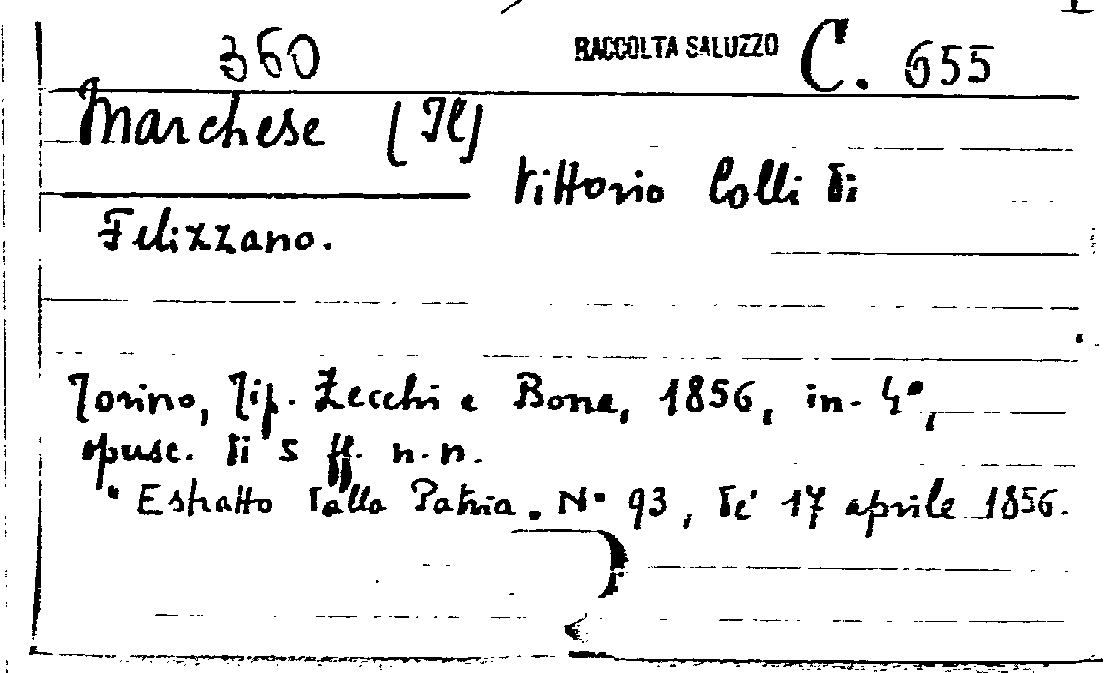 360 RACCOLTA SALUZZO C. 655
Marchese (Il)
Vittorio Colli di
Felizzano.
Torino, Tip. Zecchi e Bona, 1856, in-4°,
opusc. di 5 ff. n.n.
" Estratto dalla Patria. N° 93, de' 17 aprile 1856.